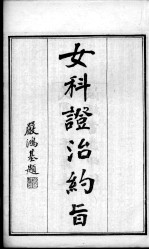 女科證治約旨
嚴鴻基題